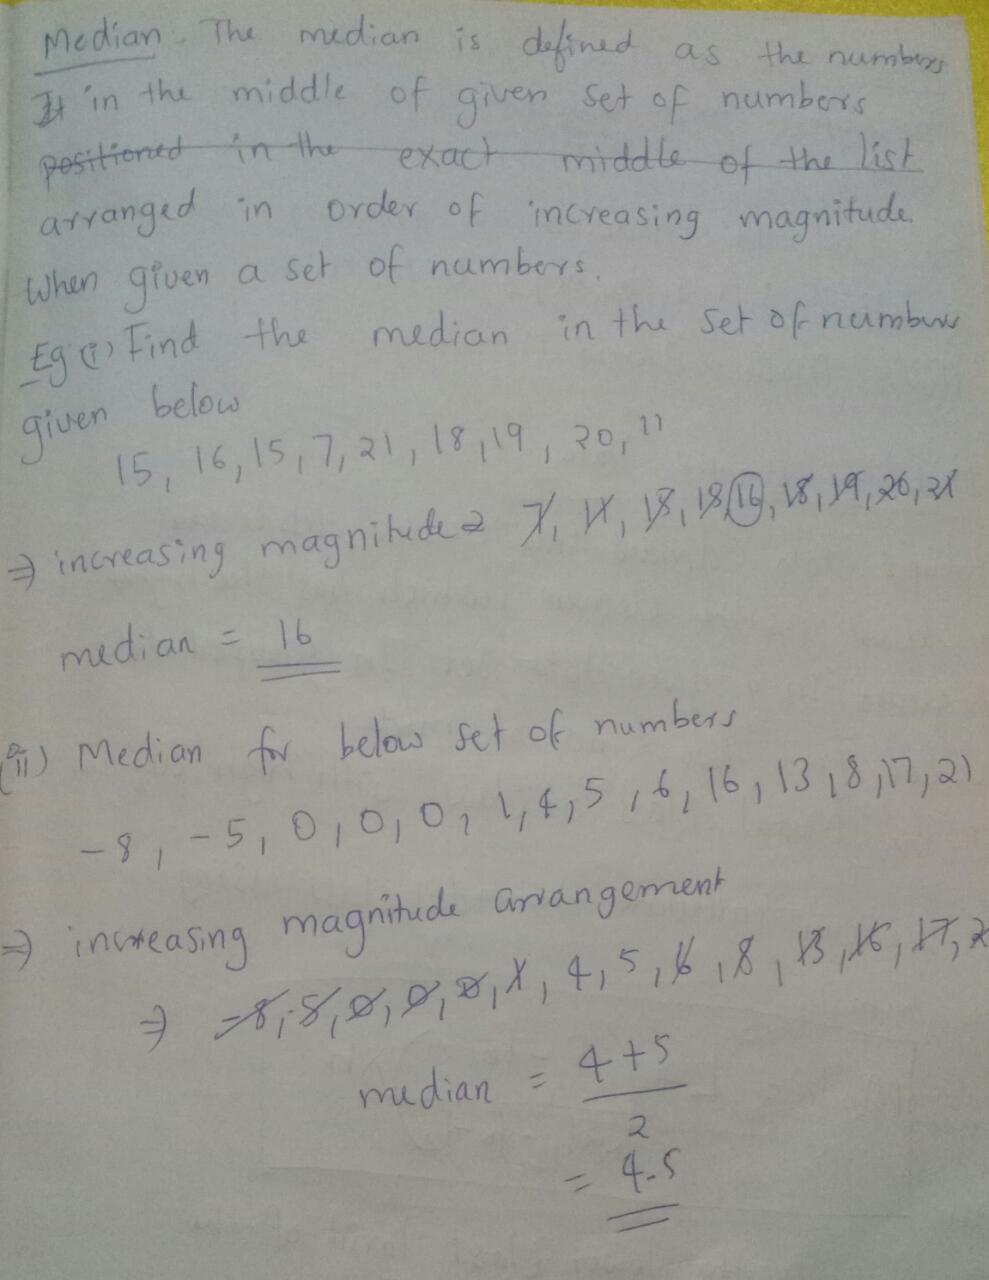 Median. The median is defined as the numbers
It in the middle of given set of numbers
positioned in the exact middle of the list
arranged in order of increasing magnitude.
When given a set of numbers.
Eg (i) Find the median in the set of numbers
given below
15, 16, 15, 7, 21, 18, 19, 20, 11
⇒ increasing magnitude 7, 11, 15, 15, 16, 18, 19, 20, 21
median = 16
(ii) Median for below set of numbers
-8, -5, 0, 0, 0, 1, 4, 5, 6, 16, 13, 8, 17, 21
⇒ increasing magnitude arrangement
⇒ -8, -5, 0, 0, 0, 1, 4, 5, 6, 8, 13, 16, 17, 2
median = 4+5
2
= 4.5